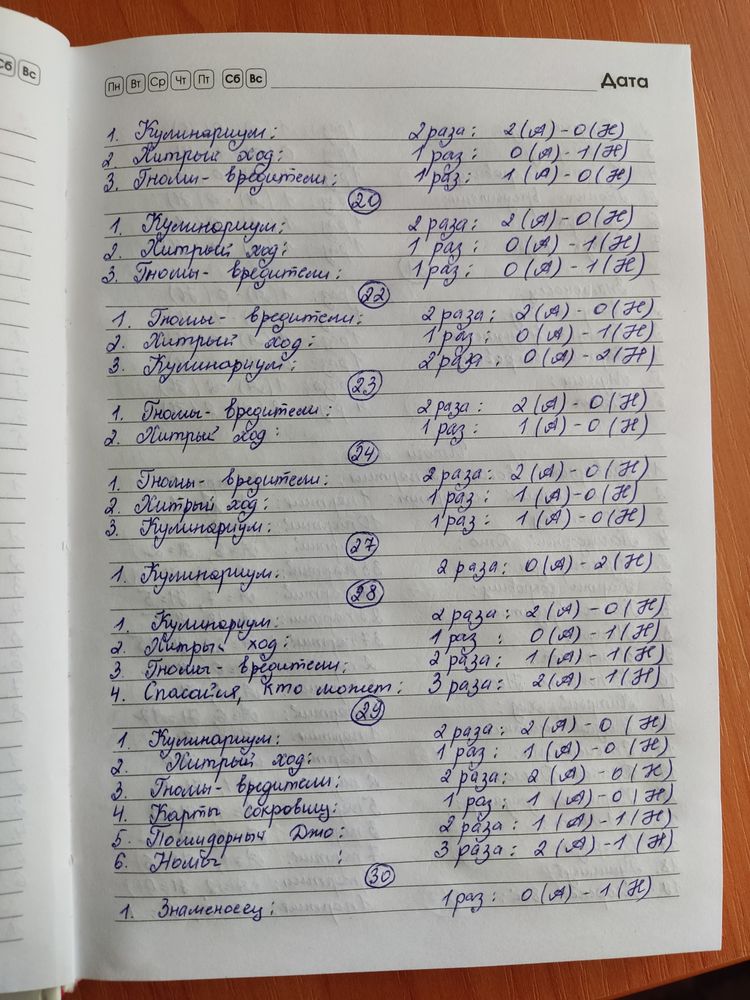 Сб Вс
Пн Вт Ср Чт Пт Сб Вс Дата
1. Кулинариум: 2 раза: 2(А) - 0(Н)
2. Хитрый ход: 1 раз: 0(А) - 1(Н)
3. Гномы-вредители: 1 раз: 1(А) - 0(Н)
20
1. Кулинариум: 2 раза: 2(А) - 0(Н)
2. Хитрый ход: 1 раз: 0(А) - 1(Н)
3. Гномы-вредители: 1 раз: 0(А) - 1(Н)
22
1. Гномы-вредители: 2 раза: 2(А) - 0(Н)
2. Хитрый ход: 1 раз: 0(А) - 1(Н)
3. Кулинариум: 2 раза: 0(А) - 2(Н)
23
1. Гномы-вредители: 2 раза: 2(А) - 0(Н)
2. Хитрый ход: 1 раз: 1(А) - 0(Н)
24
1. Гномы-вредители: 2 раза: 2(А) - 0(Н)
2. Хитрый ход: 1 раз: 1(А) - 0(Н)
3. Кулинариум: 1 раз: 1(А) - 0(Н)
27
1. Кулинариум: 2 раза: 0(А) - 2(Н)
28
1. Кулинариум: 2 раза: 2(А) - 0(Н)
2. Хитрый ход: 1 раз: 0(А) - 1(Н)
3. Гномы-вредители: 2 раза: 1(А) - 1(Н)
4. Спасайся, кто может: 3 раза: 2(А) - 1(Н)
29
1. Кулинариум: 2 раза: 2(А) - 0(Н)
2. Хитрый ход: 1 раз: 1(А) - 0(Н)
3. Гномы-вредители: 2 раза: 2(А) - 0(Н)
4. Карты сокровищ: 1 раз: 1(А) - 0(Н)
5. Помидорный Джо: 2 раза: 1(А) - 1(Н)
6. Номы : 3 раза: 2(А) - 1(Н)
30
1. Знаменосец: 1 раз: 0(А) - 1(Н)